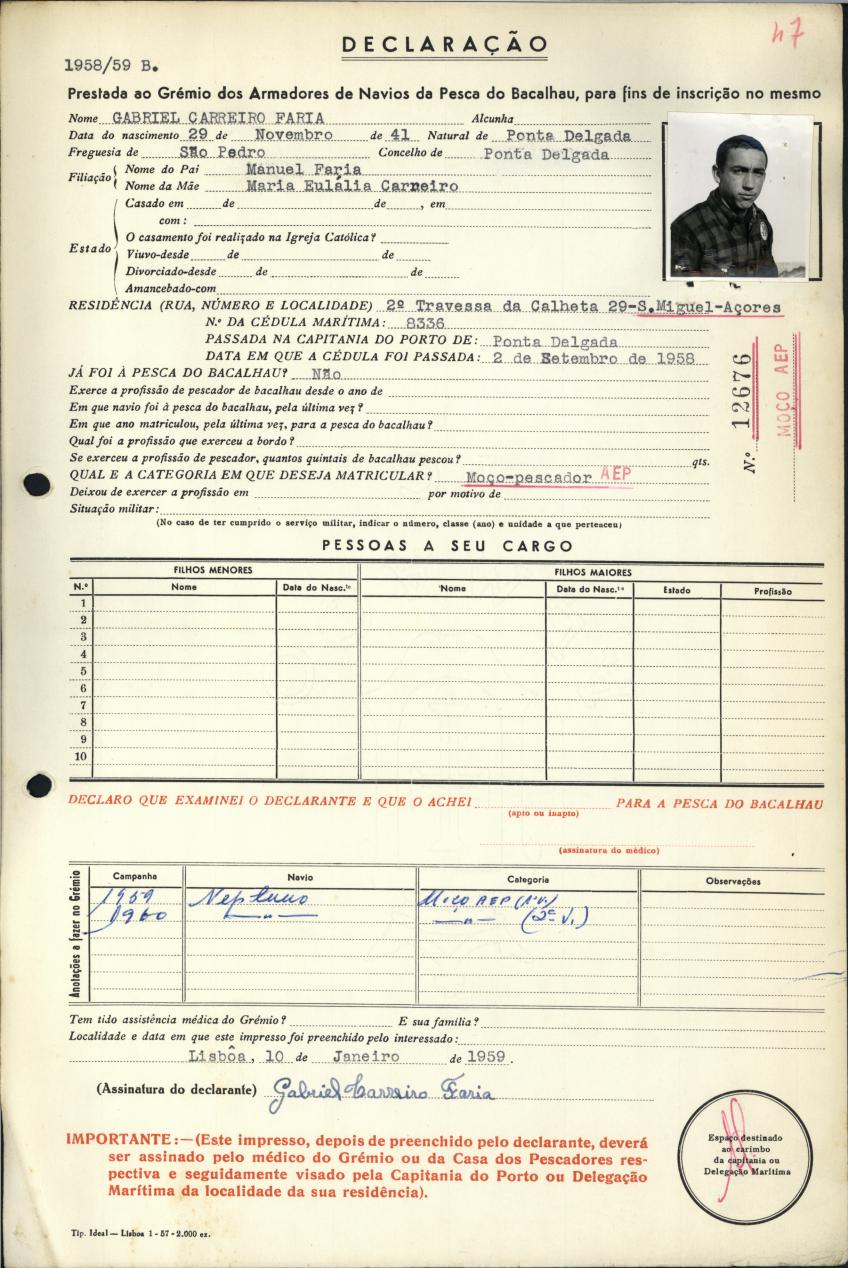 47
DECLARAÇÃO
1958/59 B.
Prestada ao Grémio dos Armadores de Navios da Pesca do Bacalhau, para fins de inscrição no mesmo
Nome GABRIEL CARREIRO FARIA Alcunha
Data do nascimento 29 de Novembro de 41 Natural de Ponta Delgada
Freguesia de São Pedro Concelho de Ponta Delgada
Filiação Nome do Pai Manuel Faria
Nome da Mãe Maria Eulália Carneiro
Estado Casado em de de , em
com :
O casamento foi realizado na Igreja Católica?
Viuvo-desde de de
Divorciado-desde de de
Amancebado-com
RESIDÊNCIA (RUA, NÚMERO E LOCALIDADE) 2º Travessa da Calheta 29-S.Miguel-Açores
N.º DA CÉDULA MARÍTIMA: 8336
PASSADA NA CAPITANIA DO PORTO DE: Ponta Delgada
DATA EM QUE A CÉDULA FOI PASSADA: 2 de Setembro de 1958
JÁ FOI À PESCA DO BACALHAU? Não
Exerce a profissão de pescador de bacalhau desde o ano de
Em que navio foi à pesca do bacalhau, pela última vez?
Em que ano matriculou, pela última vez, para a pesca do bacalhau?
Qual foi a profissão que exerceu a bordo?
Se exerceu a profissão de pescador, quantos quintais de bacalhau pescou? qts.
QUAL E A CATEGORIA EM QUE DESEJA MATRICULAR? Moço-pescador AEP
Deixou de exercer a profissão em por motivo de
Situação militar:
(No caso de ter cumprido o serviço militar, indicar o número, classe (ano) e unidade a que pertenceu)
N.º 12676
MOÇO AEP
PESSOAS A SEU CARGO
FILHOS MENORES FILHOS MAIORES
N.º Nome Data do Nasc.to Nome Data do Nasc.to Estado Profissão
1
2
3
4
5
6
7
8
9
10
DECLARO QUE EXAMINEI O DECLARANTE E QUE O ACHEI PARA A PESCA DO BACALHAU
(apto ou inapto)
(assinatura do médico)
Anotações a fazer no Grémio
Campanha Navio Categoria Observações
1959 Neptuno Moço AEP (1ª V.)
1960 —〃— —〃— (2ª V.)
Tem tido assistência médica do Grémio? E sua família?
Localidade e data em que este impresso foi preenchido pelo interessado:
Lisbôa, 10 de Janeiro de 1959.
(Assinatura do declarante) Gabriel Carreiro Faria
IMPORTANTE:—(Este impresso, depois de preenchido pelo declarante, deverá
ser assinado pelo médico do Grémio ou da Casa dos Pescadores res-
pectiva e seguidamente visado pela Capitania do Porto ou Delegação
Marítima da localidade da sua residência).
Espaço destinado
ao carimbo
da capitania ou
Delegação Marítima
Tip. Ideal — Lisboa 1 - 57 - 2.000 ex.